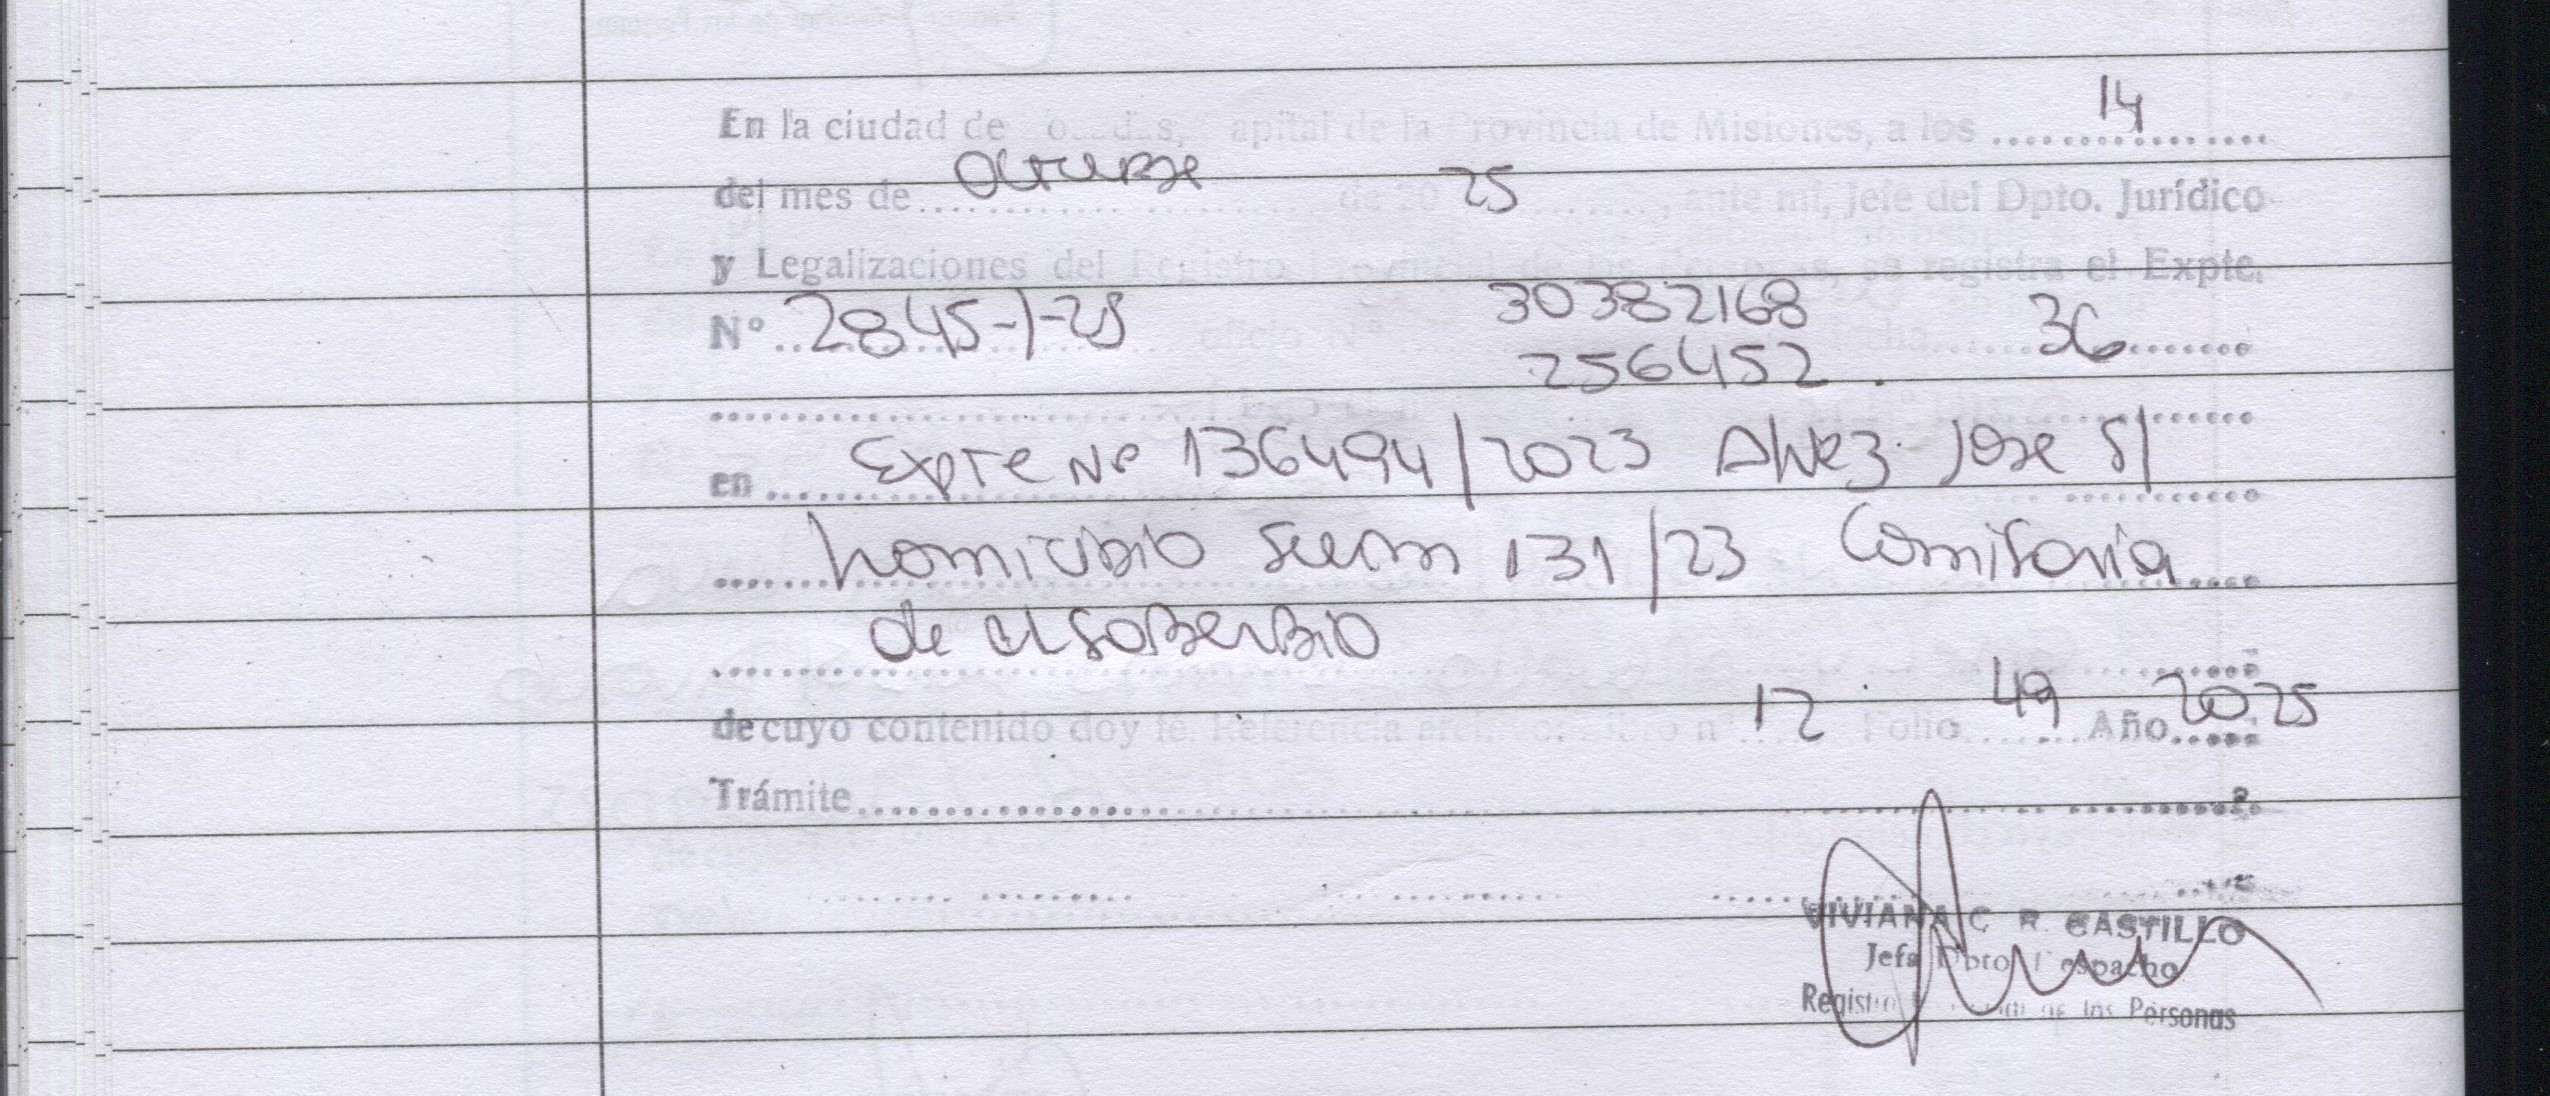 En la ciudad de Posadas, Capital de la Provincia de Misiones, a los 14
del mes de octubre de 20 25, ante mi, Jefe del Dpto. Jurídico
y Legalizaciones del Registro Provincial de las Personas, se registra el Expte.
Nº 2845-1-25 oficio Nº 30382168 fecha 36
256452
en Expte Nº 136494/2023 Alvez Jose S/
homicidio Sum 131/23 Comisaria
de el soberbio
de cuyo contenido doy fé. Referencia archivo: Libro nº 12 Folio 49 Año 2025
Trámite
VIVIANA C. R. CASTILLO
Jefa Dpto. Despacho
Registro Provincial de las Personas